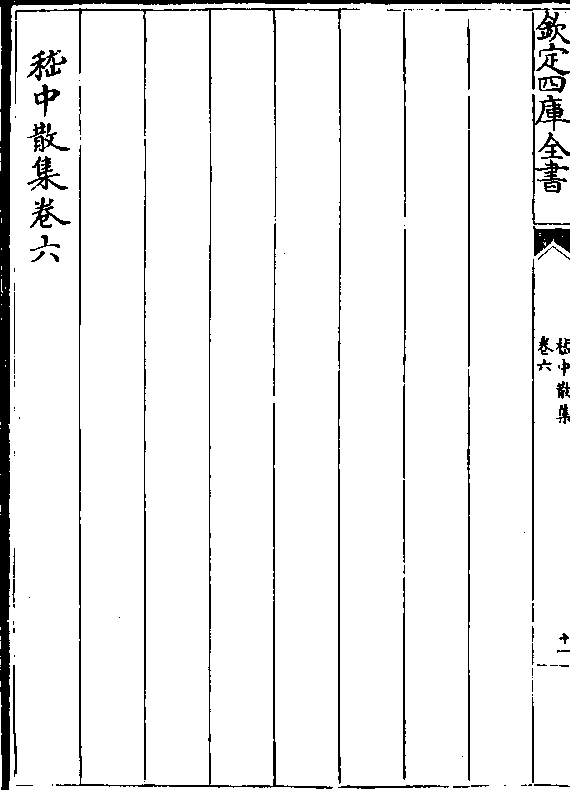 欽定四庫全書
嵇中散集
卷六
十一
嵇中散集卷六